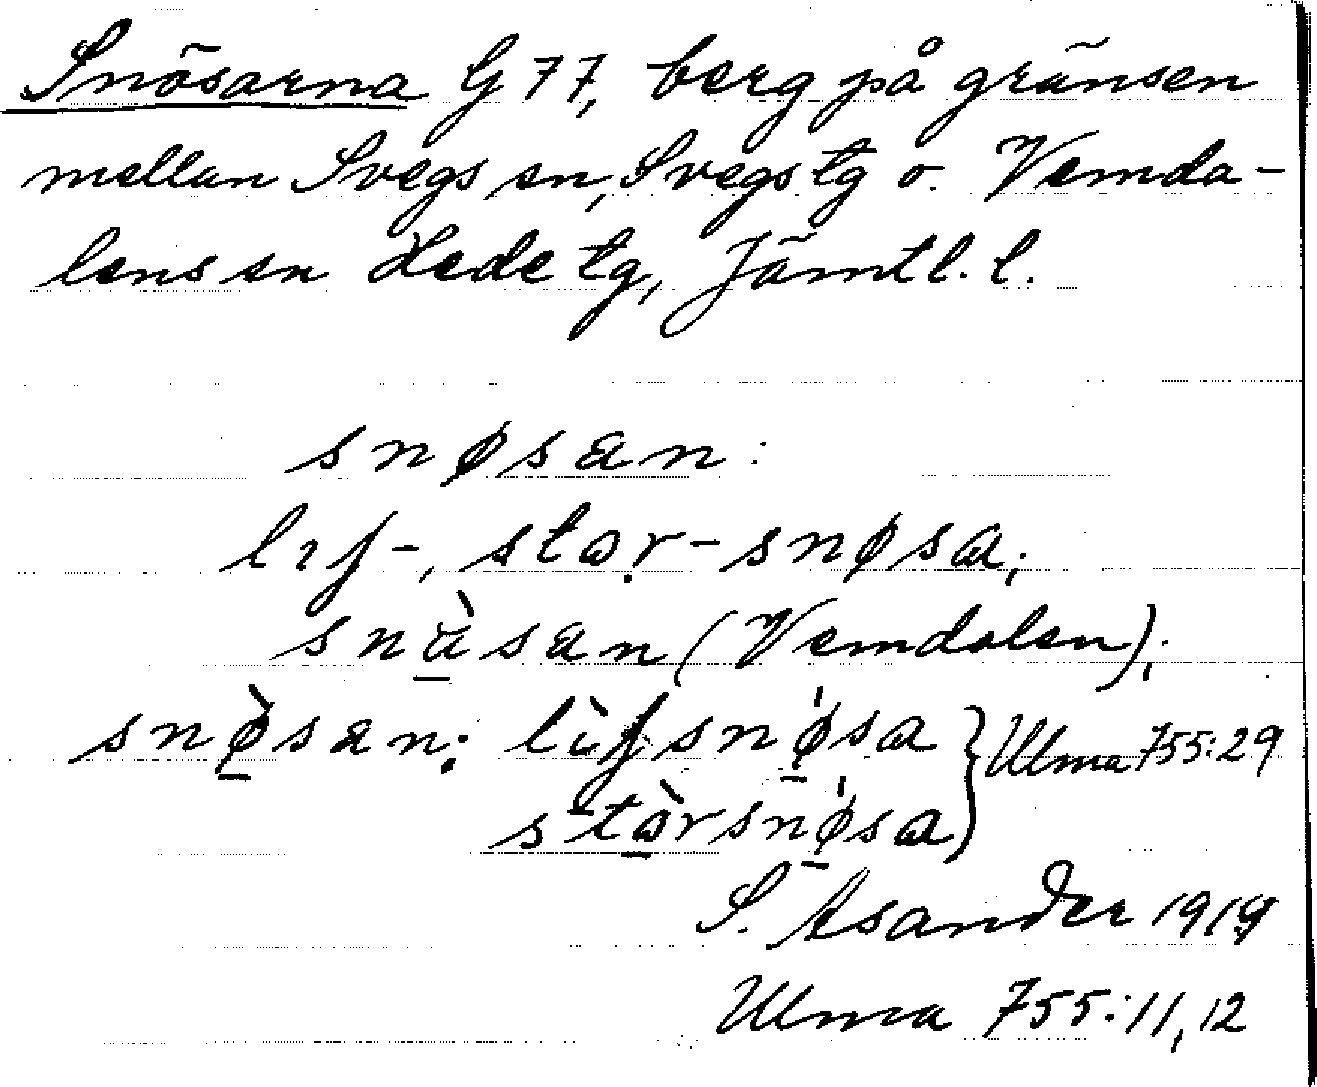 Snösarna G 77, berg på gränsen
mellan Svegs sn, Svegs tg o. Vemda-
lens sn Hede tg, Jämtl. l.
snøsan:
lıf-, stọr-snøsa;
snä̀san (Vemdalen);
snø̀san: lìfsnǿsa } Ulma 755:29
stòrsnǿsa
S. Asander 1919
Ulma 755:11,12